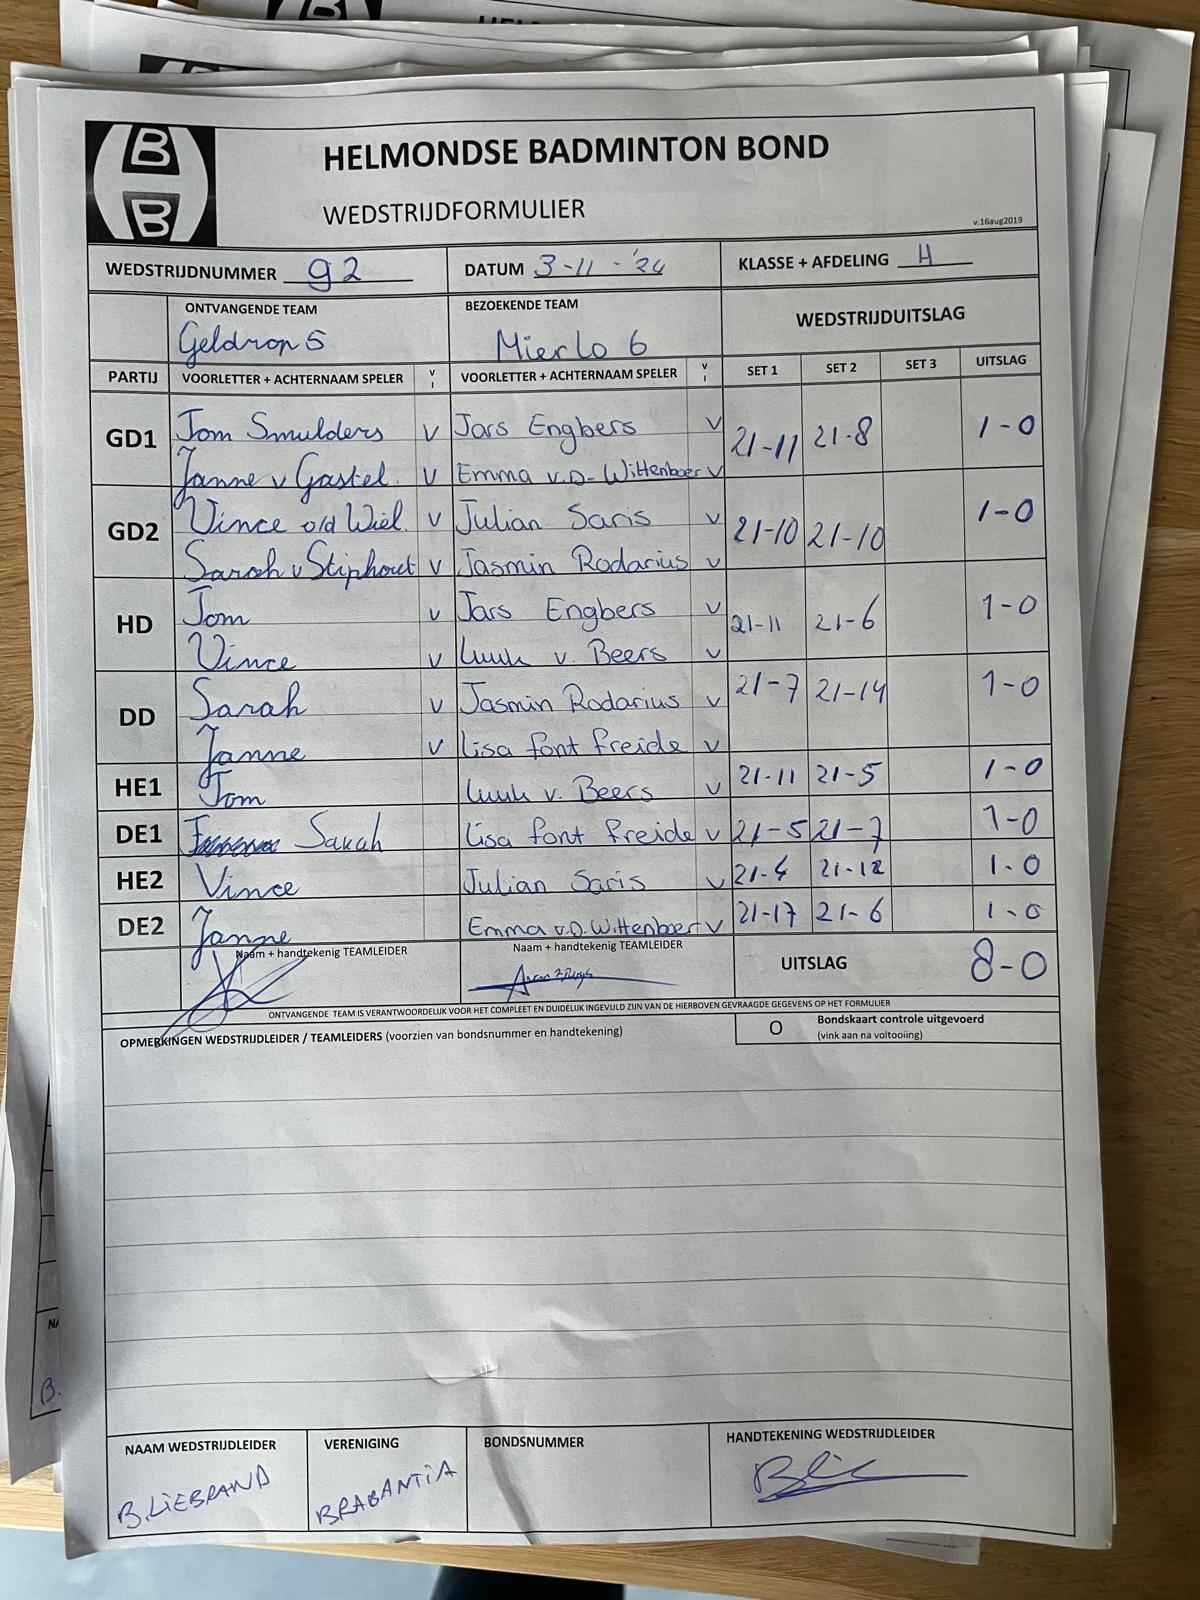 HELMONDSE BADMINTON BOND
WEDSTRIJDFORMULIER
v.16aug2019
WEDSTRIJDNUMMER 92 DATUM 3-11-'24 KLASSE + AFDELING H
ONTVANGENDE TEAM BEZOEKENDE TEAM WEDSTRIJDUITSLAG
Geldrop 5 Mierlo 6
PARTIJ VOORLETTER + ACHTERNAAM SPELER V I VOORLETTER + ACHTERNAAM SPELER V I SET 1 SET 2 SET 3 UITSLAG
GD1 Tom Smulders v Jars Engbers v 21-11 21-8 1-0
Janne v Gastel v Emma v.D. Wittenboer v
GD2 Vince o/d Wiel v Julian Saris v 21-10 21-10 1-0
Sarah v Stiphout v Jasmin Rodarius v
HD Tom v Jars Engbers v 21-11 21-6 1-0
Vince v Luuk v. Beers v
DD Sarah v Jasmin Rodarius v 21-7 21-14 1-0
Janne v Lisa font freide v
HE1 Tom Luuk v. Beers v 21-11 21-5 1-0
DE1 Sarah Lisa font freide v 21-5 21-7 1-0
HE2 Vince Julian Saris v 21-4 21-12 1-0
DE2 Janne Emma v.D. Wittenboer v 21-17 21-6 1-0
Naam + handtekenig TEAMLEIDER Naam + handtekenig TEAMLEIDER UITSLAG 8-0
ONTVANGENDE TEAM IS VERANTWOORDELIJK VOOR HET COMPLEET EN DUIDELIJK INGEVULD ZIJN VAN DE HIERBOVEN GEVRAAGDE GEGEVENS OP HET FORMULIER
OPMERKINGEN WEDSTRIJDLEIDER / TEAMLEIDERS (voorzien van bondsnummer en handtekening) O Bondskaart controle uitgevoerd
(vink aan na voltooiing)
NAAM WEDSTRIJDLEIDER VERENIGING BONDSNUMMER HANDTEKENING WEDSTRIJDLEIDER
B. LIEBRAND BRABANTIA